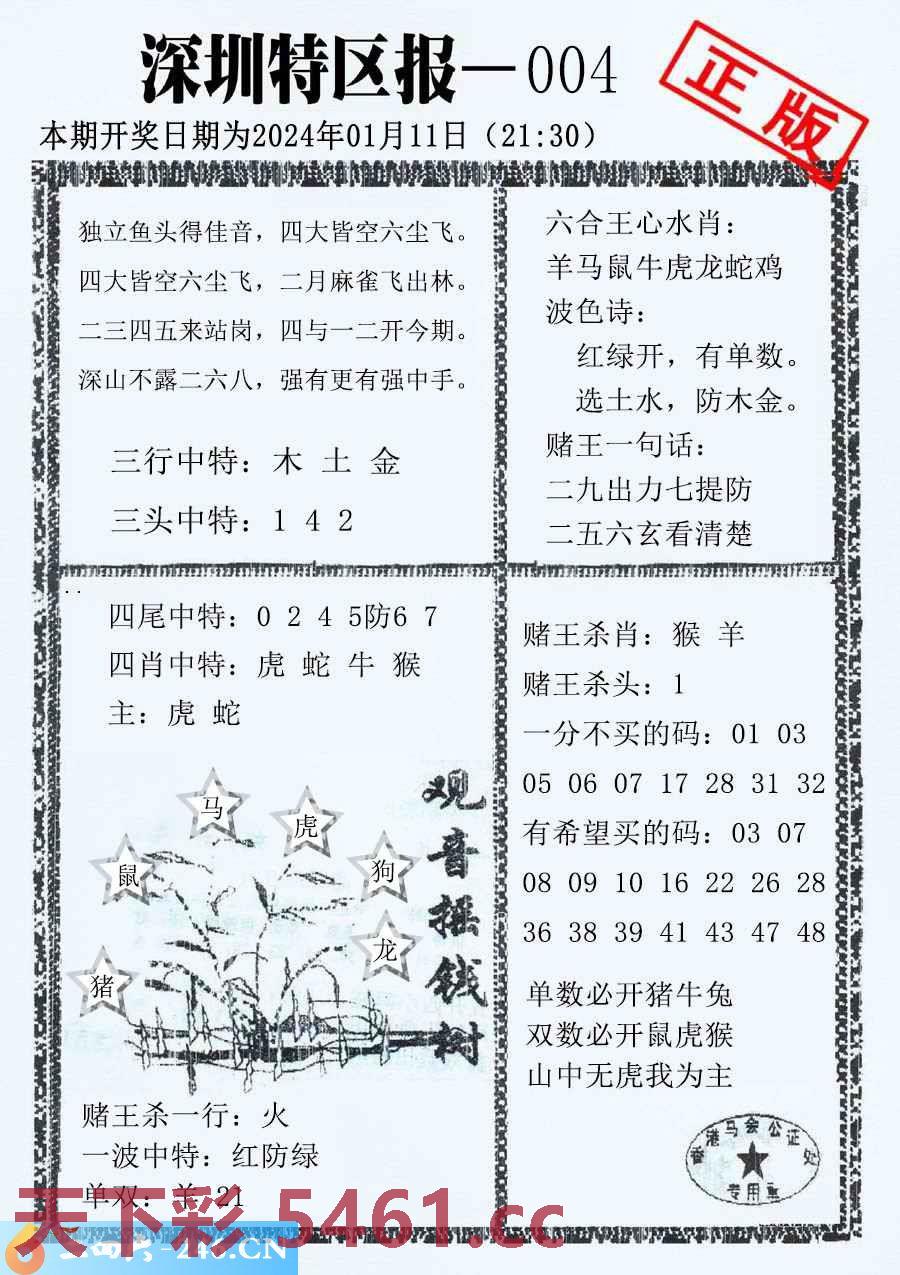 深圳特区报—004
正版
本期开奖日期为2024年01月11日（21:30）
独立鱼头得佳音，四大皆空六尘飞。
四大皆空六尘飞，二月麻雀飞出林。
二三四五来站岗，四与一二开今期。
深山不露二六八，强有更有强中手。
三行中特：木 土 金
三头中特：1 4 2
六合王心水肖：
羊马鼠牛虎龙蛇鸡
波色诗：
红绿开，有单数。
选土水，防木金。
赌王一句话：
二九出力七提防
二五六玄看清楚
四尾中特：0 2 4 5防6 7
四肖中特：虎 蛇 牛 猴
主：虎 蛇
马
虎
鼠
狗
龙
猪
观音摇钱树
赌王杀一行：火
一波中特：红防绿
单双：羊 21
赌王杀肖：猴 羊
赌王杀头：1
一分不买的码：01 03
05 06 07 17 28 31 32
有希望买的码：03 07
08 09 10 16 22 26 28
36 38 39 41 43 47 48
单数必开猪牛兔
双数必开鼠虎猴
山中无虎我为主
香港马会公证处
专用章
天下彩 5461.cc